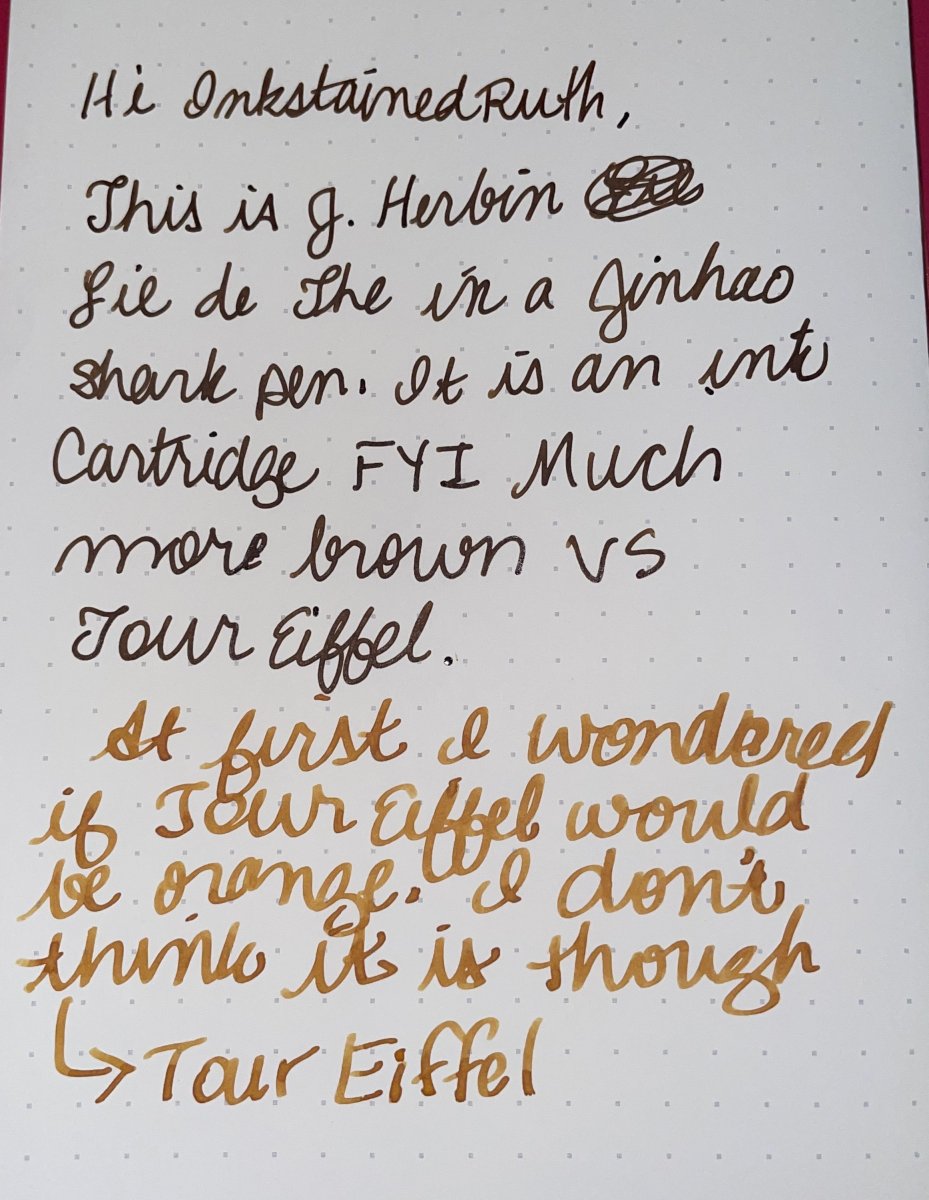 Hi InkstainedRuth,
This is J. Herbin
Lie de The in a Jinhao
shark pen. It is an ink
Cartridge FYI Much
more brown vs
Tour Eiffel.
At first I wondered
if Tour Eiffel would
be orange. I don't
think it is though
↳ Tour Eiffel